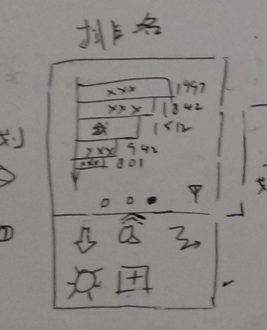 排名
xxx 1997
xxx 1842
1512
xxx 942
xxx 801